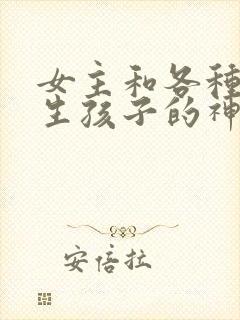 女主和各種
生孩子的神
安倍拉